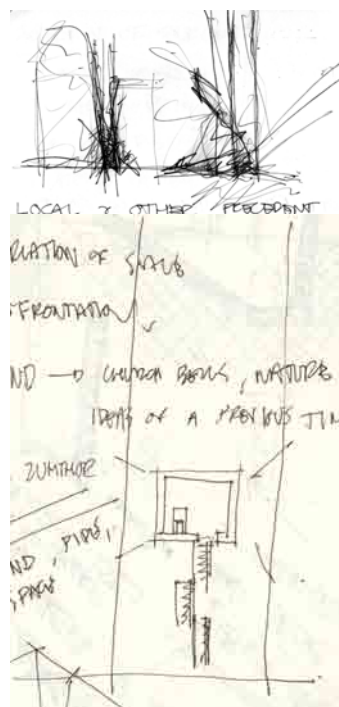 LOCAL & OTHER PRECEDENT
RIATION OF SPACE
FRONTATION
ND → CHURCH BELLS, NATURE
IDEAS OF A PREVIOUS TIM
ZUMTHOR
ND, PIPE,
SPACE